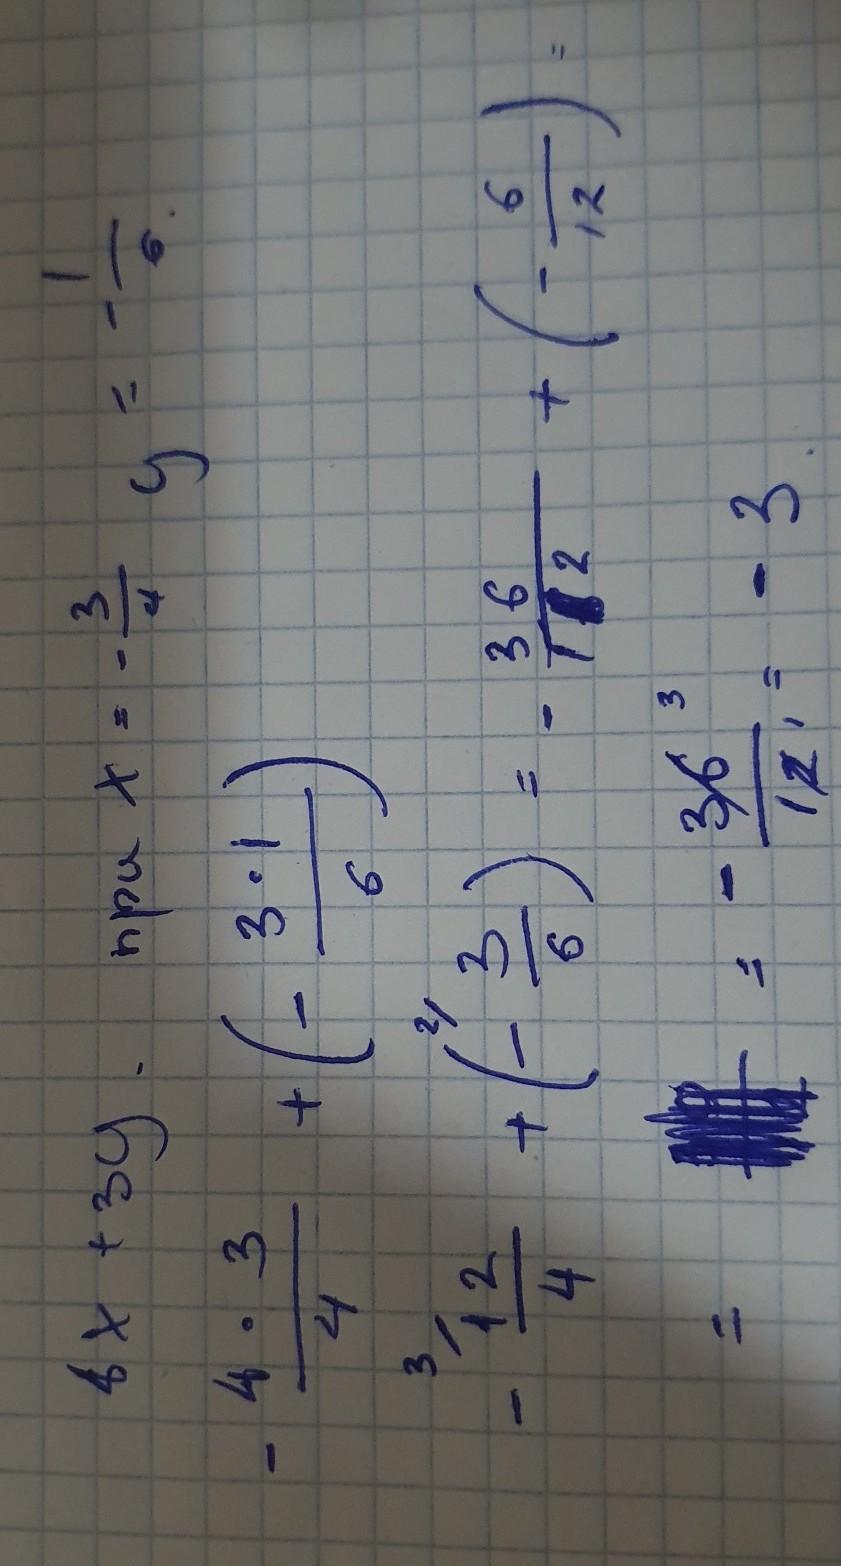 4x + 3y. при x = -3/4 y = -1/6.
- 4·3/4 + (- 3·1/6)
- 3/ 12/4 + 2/ (- 3/6) = - 36/12 + (- 6/12) =
= = - 36/12 3 1 = - 3.